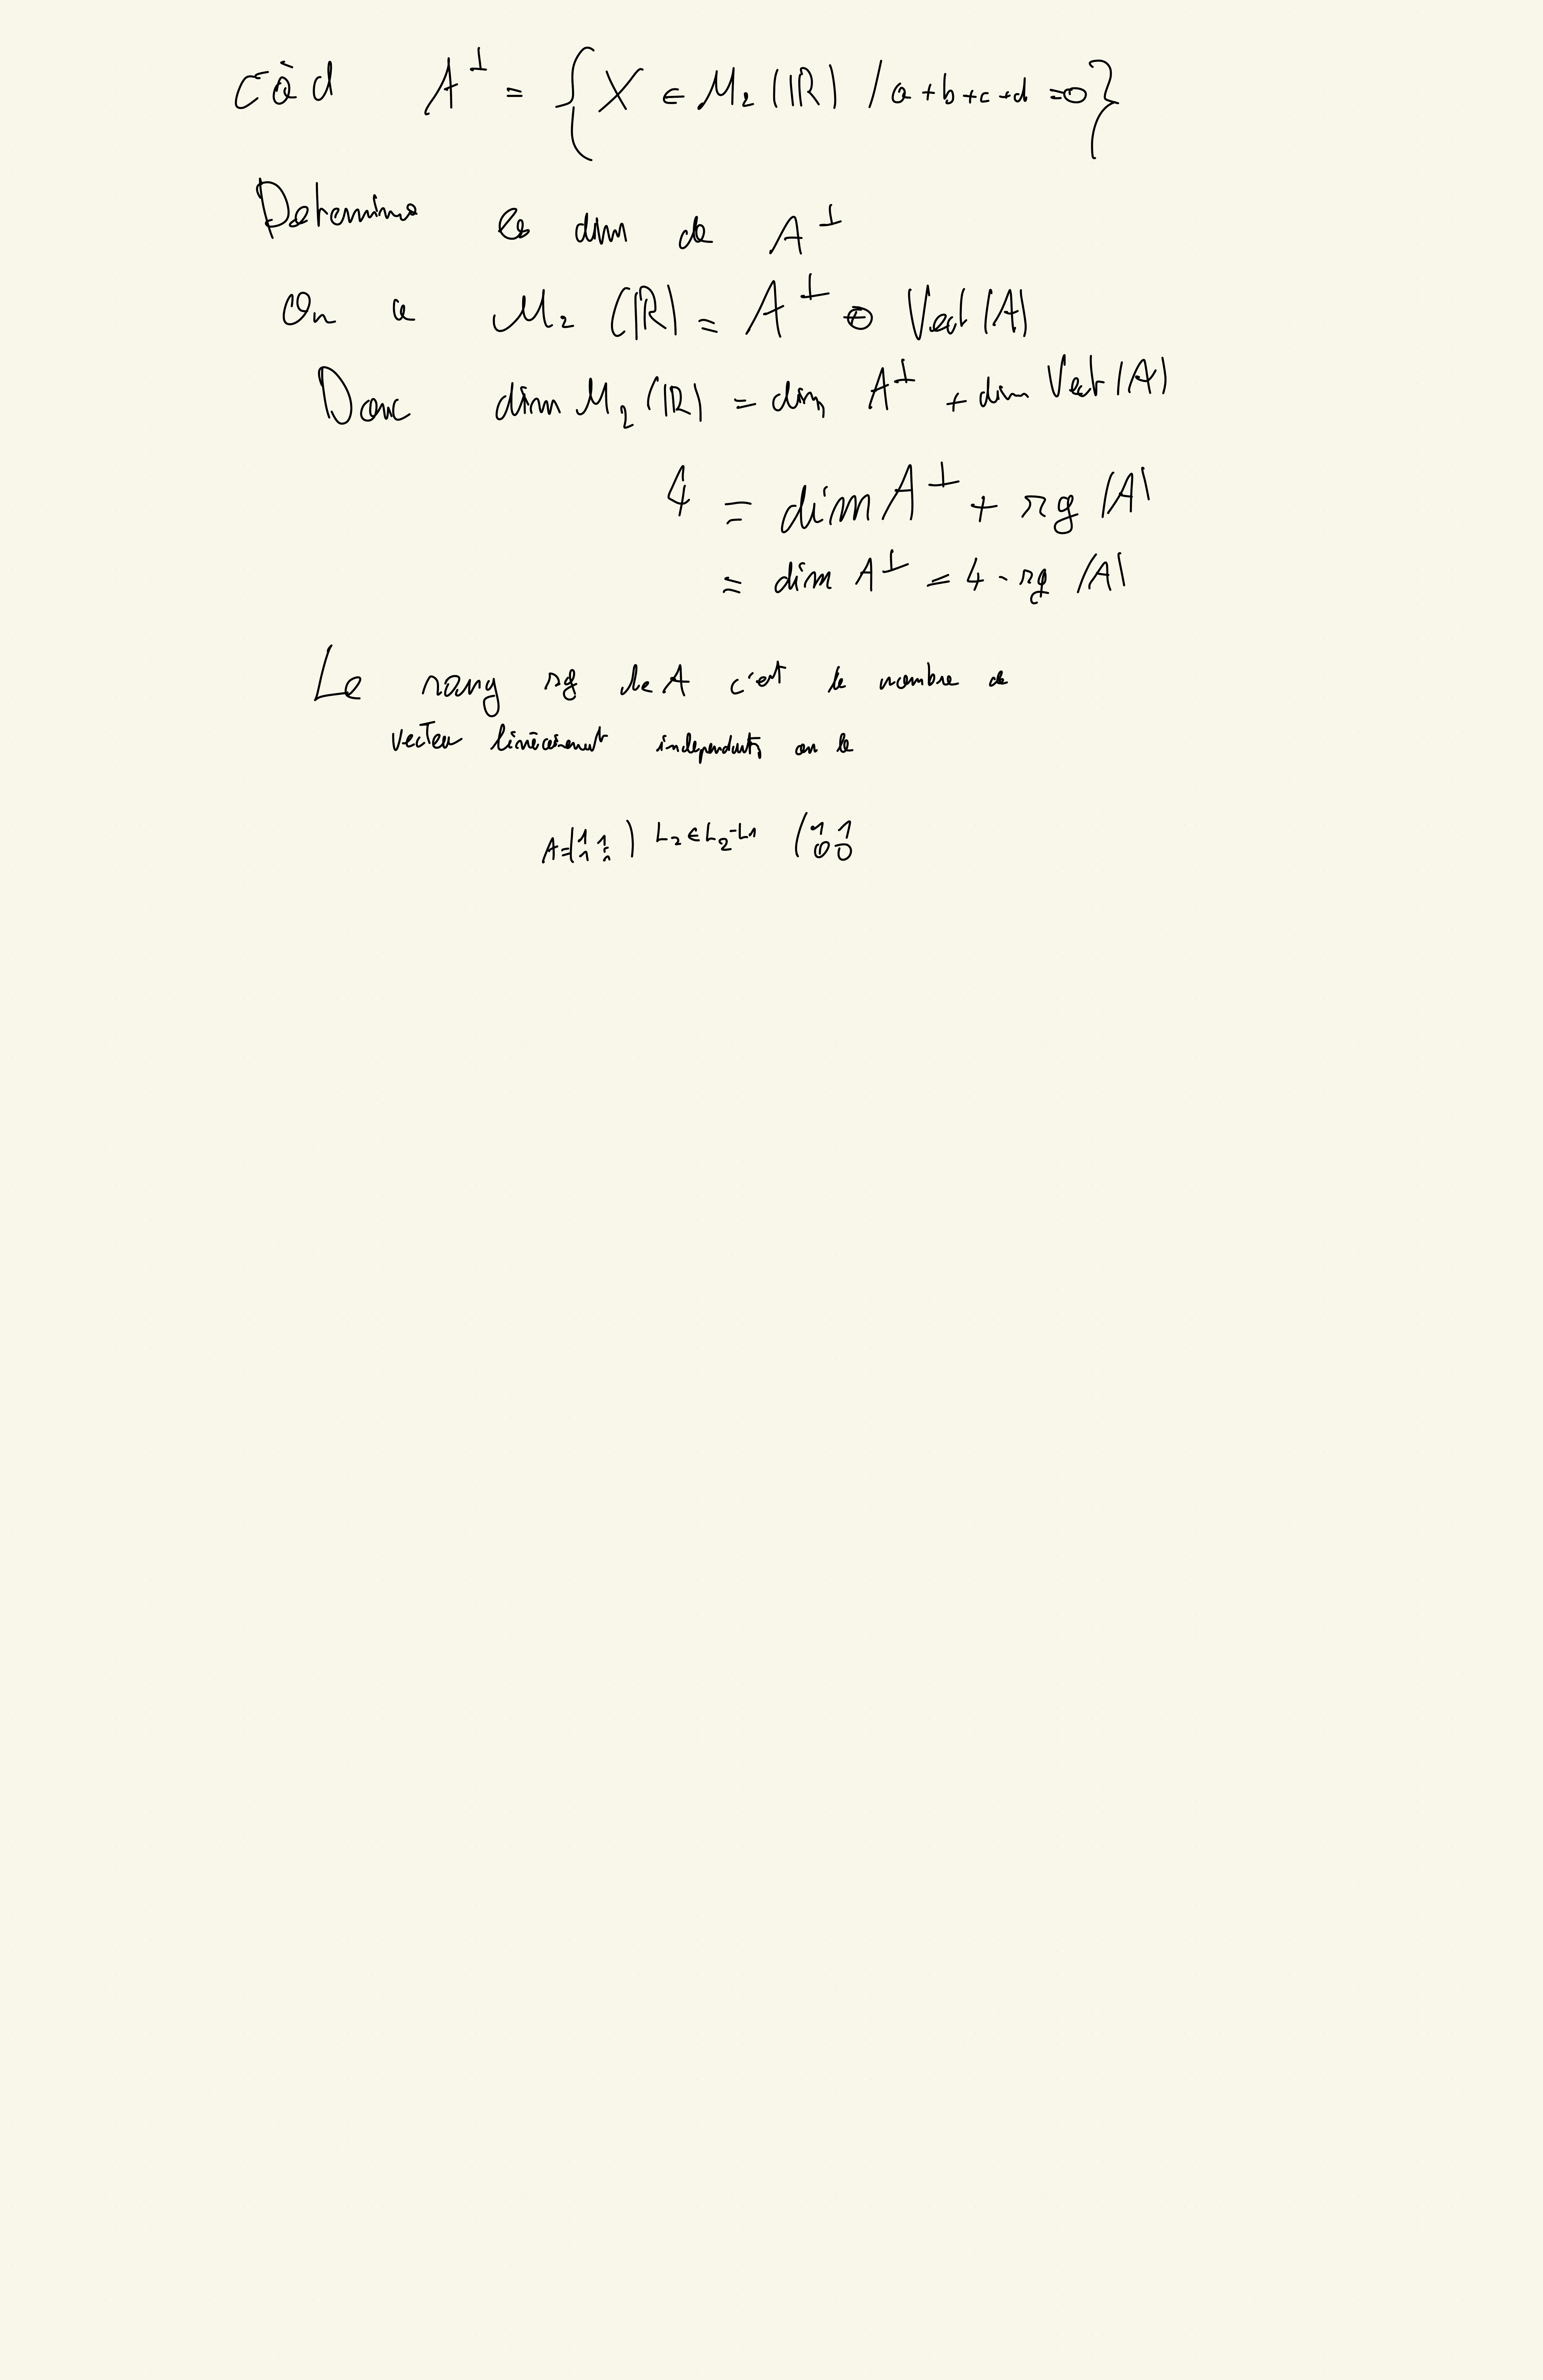 càd A⊥ = { X ∈ M₂ (ℝ) / a+b+c+d =0}
Determine la dim de A⊥
On a M₂ (ℝ) = A⊥ ⊕ Vect (A)
Donc dim M₂ (ℝ) = dim A⊥ + dim Vect (A)
4 = dim A⊥ + rg (A)
= dim A⊥ = 4 - rg (A)
Le rang rg de A c'est le nombre de
vecteu linéairement independants on le
A=(1 1 ) L₂ ∈ L₂-L₁ (1 1
1 1 0 0